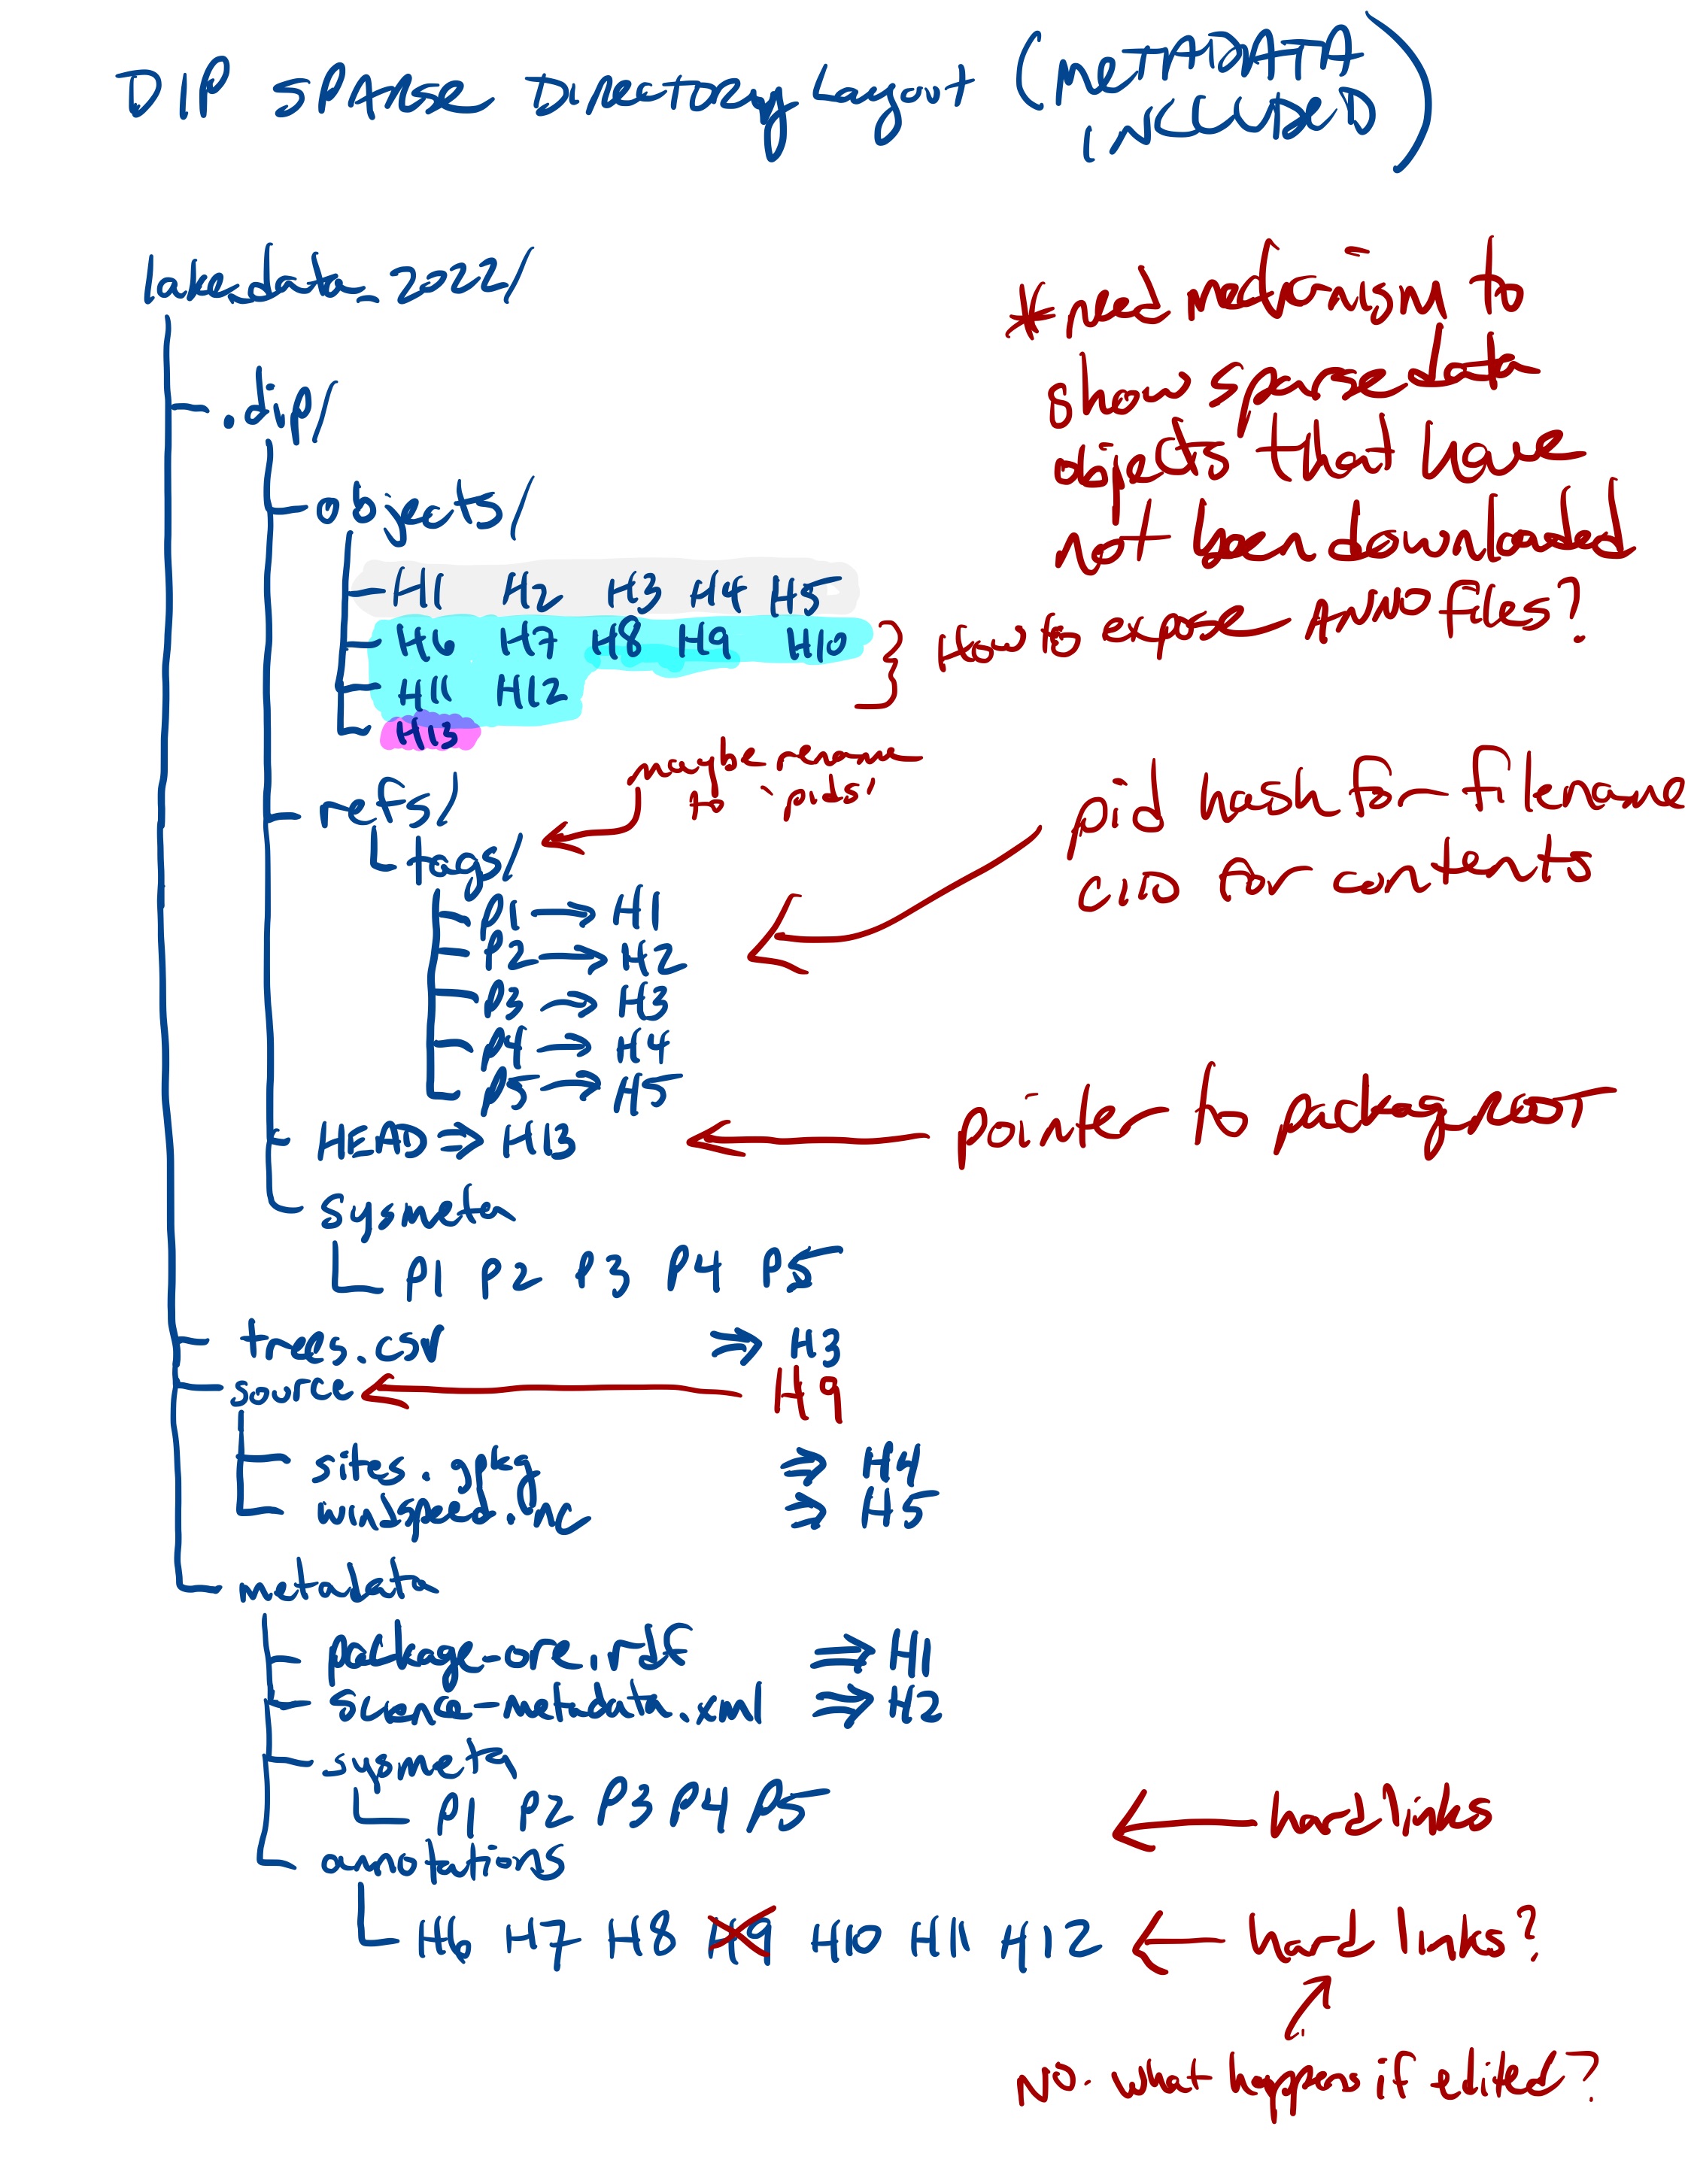 DIP SPARSE DIRECTORY LAYOUT (METADATA
INCLUDED)
lake_data_2022/
* need mechanism to
show sparse data
objects that have
not been downloaded
.dip/
objects/
H1 H2 H3 H4 H5
H6 H7 H8 H9 H10
H11 H12
H13
How to expose ANNO files?
refs/
maybe rename
to 'pids'
tags/
pid hash for filename
CID for contents
P1 → H1
P2 → H2
P3 → H3
P4 → H4
P5 → H5
HEAD ⇒ H13
pointer to package root
sysmeta
P1 P2 P3 P4 P5
trees.csv ⇒ H3
source ← H9
sites.gpkg ⇒ H4
windspeed.nc ⇒ H5
metadata
package-ore.rdf ⇒ H1
science-metadata.xml ⇒ H2
sysmeta
P1 P2 P3 P4 P5 ← hard links
annotations
H6 H7 H8 H9 H10 H11 H12 ← hard links?
NO. what happens if edited?